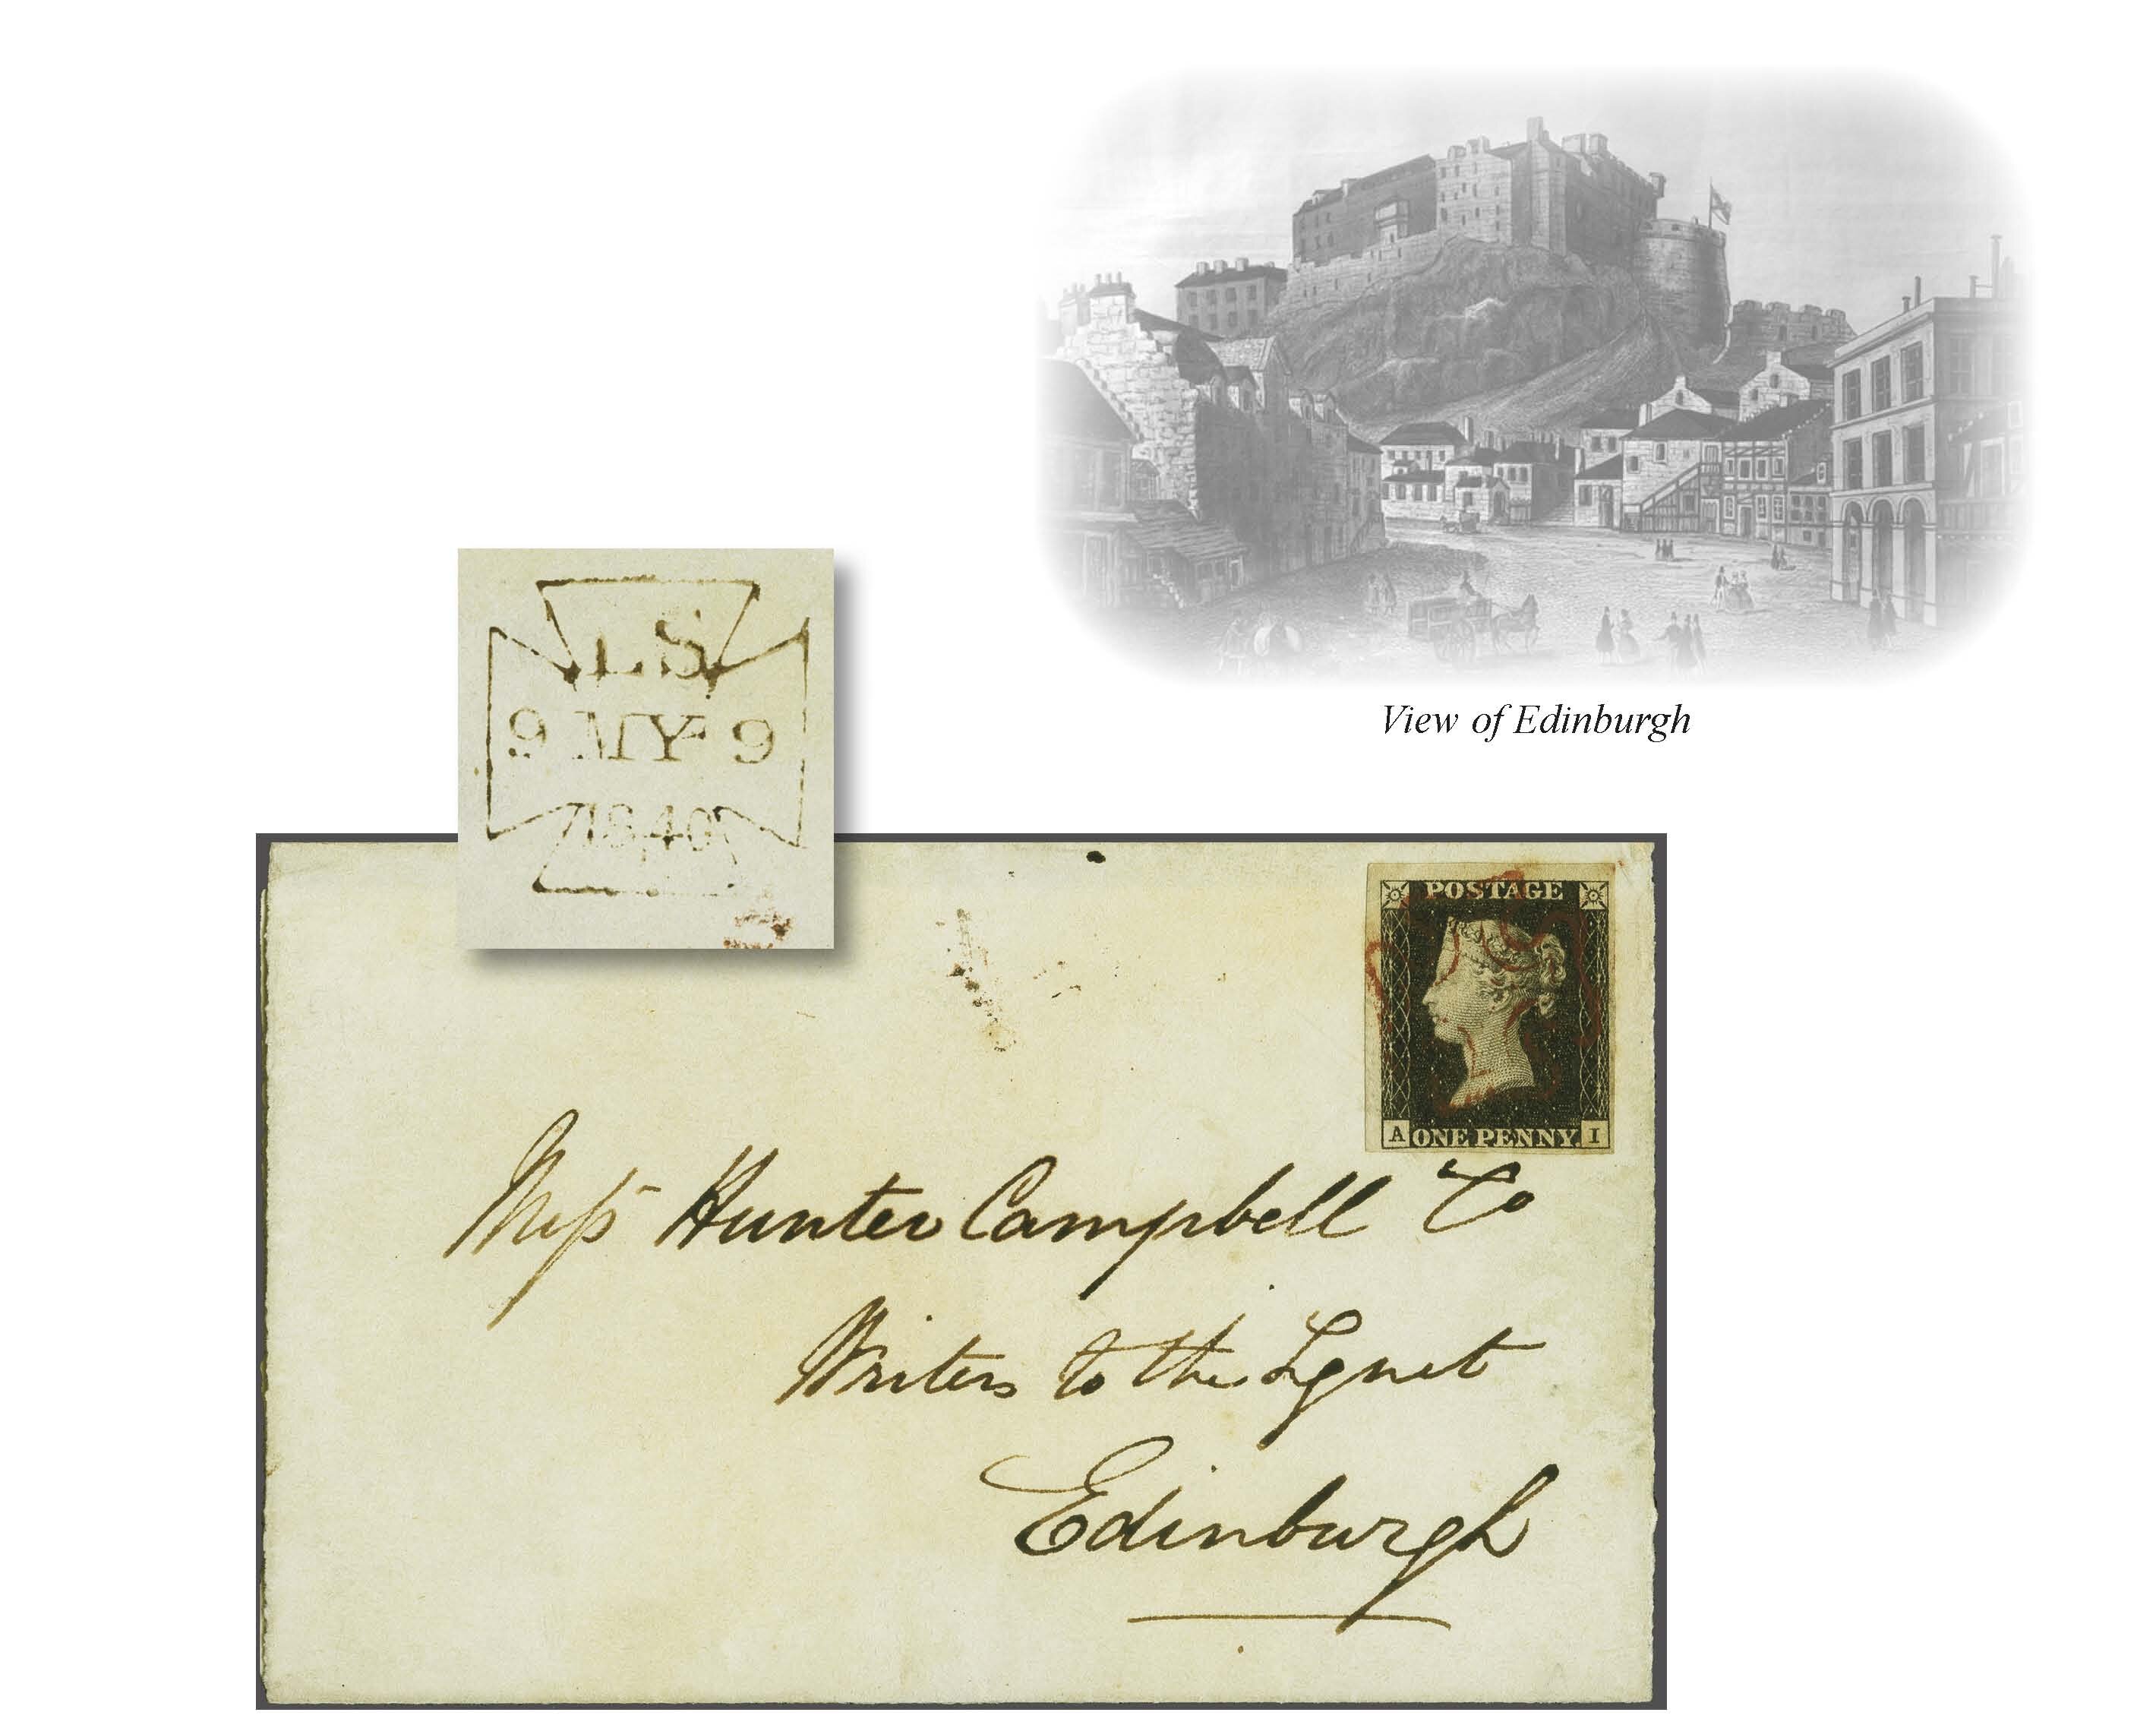 View of Edinburgh
LS
9 MY 9
1840
POSTAGE
A ONE PENNY I
Messrs Hunter Campbell & Co
Writers to the Signet
Edinburgh